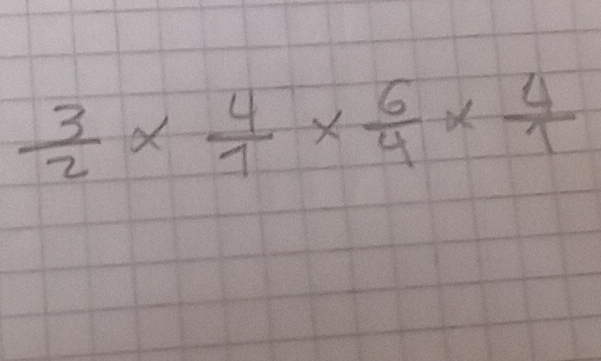 3/2 × 4/1 × 6/4 × 4/1